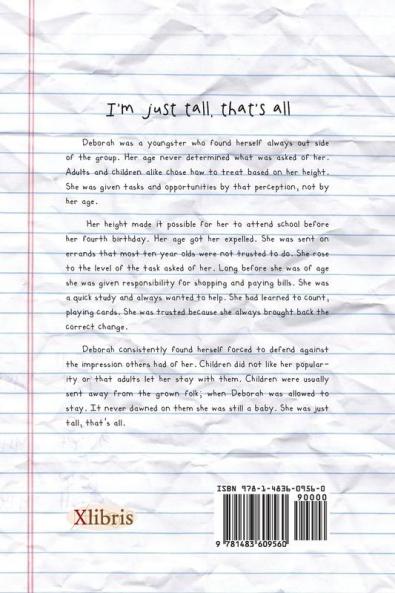 I'm just tall, that's all
Deborah was a youngster who found herself always out side
of the group. Her age never determined what was asked of her.
Adults and children alike chose how to treat based on her height.
She was given tasks and opportunities by that perception, not by
her age.
Her height made it possible for her to attend school before
her fourth birthday. Her age got her expelled. She was sent on
errands that most ten year olds were not trusted to do. She rose
to the level of the task asked of her. Long before she was of age
she was given responsibility for shopping and paying bills. She was
a quick study and always wanted to help. She had learned to count,
playing cards. She was trusted because she always brought back the
correct change.
Deborah consistently found herself forced to defend against
the impression others had of her. Children did not like her popular-
ity or that adults let her stay with them. Children were usually
sent away from the grown folk; when Deborah was allowed to
stay. It never dawned on them she was still a baby. She was just
tall, that's all.
ISBN 978-1-4836-0956-0
90000
9 781483 609560
Xlibris